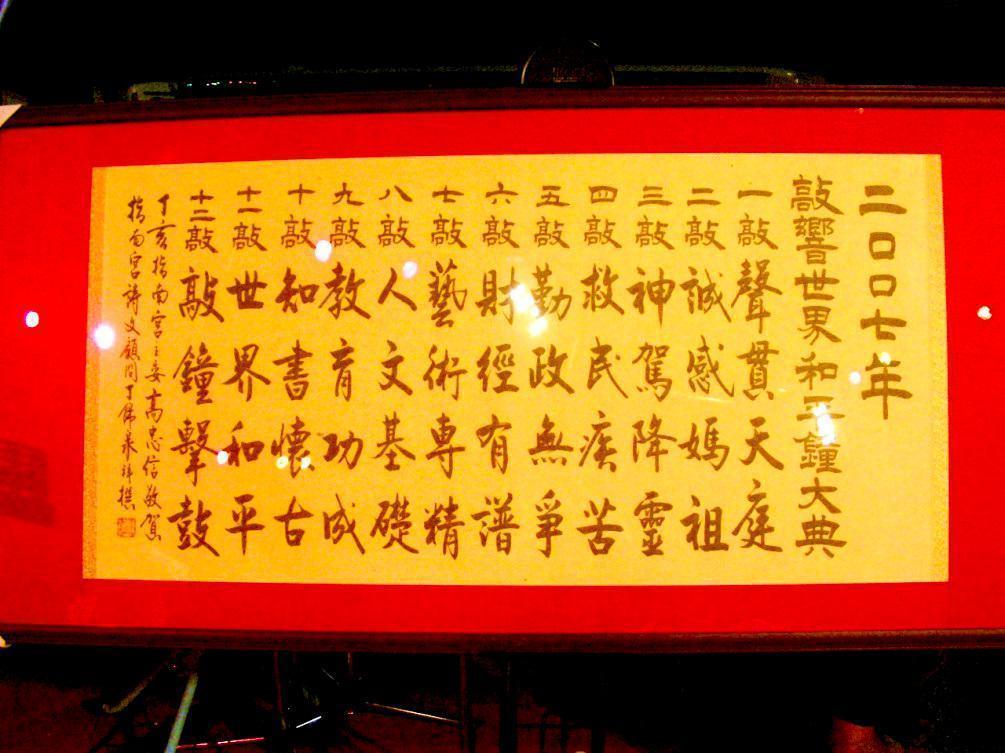 二〇〇七年
敲響世界和平鐘大典
一敲聲貫天庭
二敲誠感媽祖
三敲神駕降靈
四敲救民疾苦
五敲勤政無爭
六敲財經有譜
七敲藝術專精
八敲人文基礎
九敲教育功成
十敲知書懷古
十一敲世界和平
十二敲敲鐘擊鼓
丁亥指南宮主委高忠信敬賀
指南宮詩文顧問丁錦泉拜撰